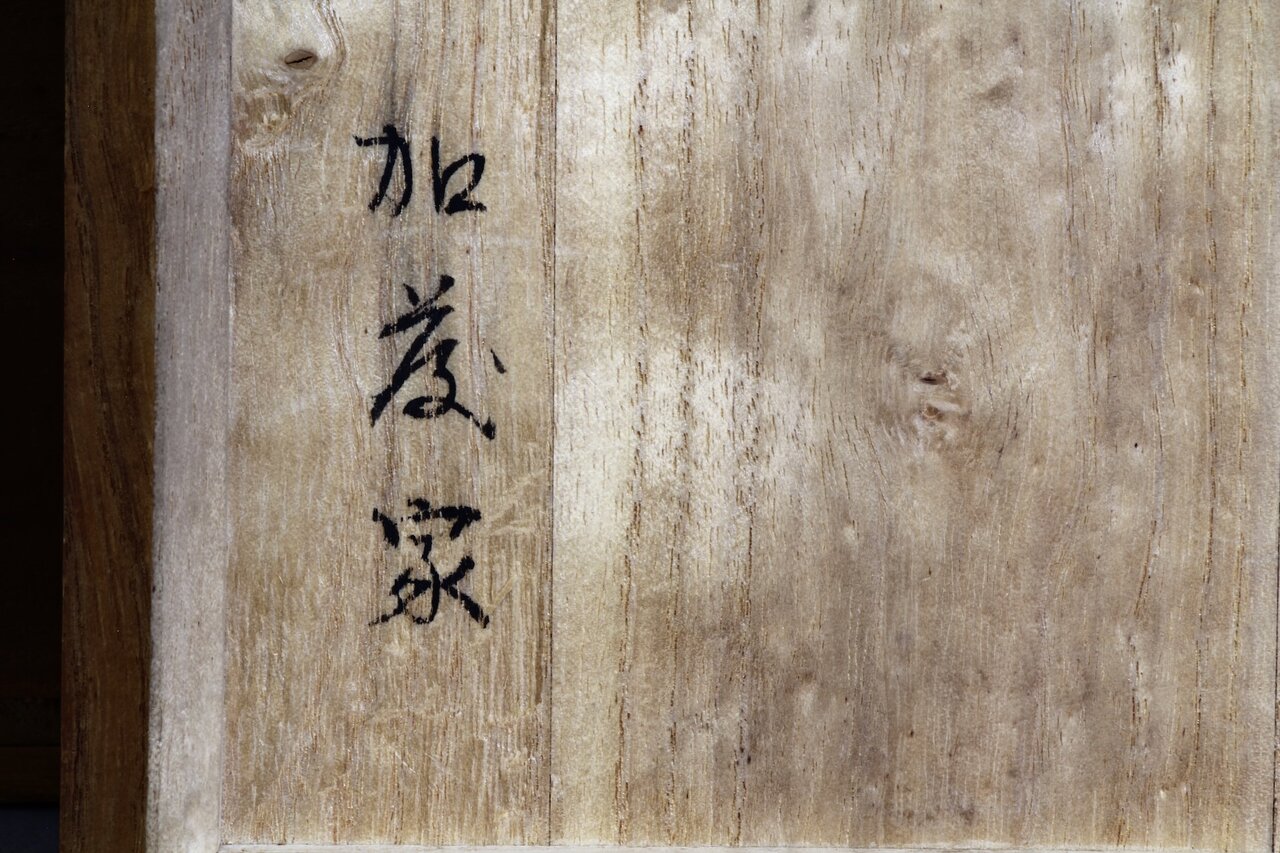 加茂家